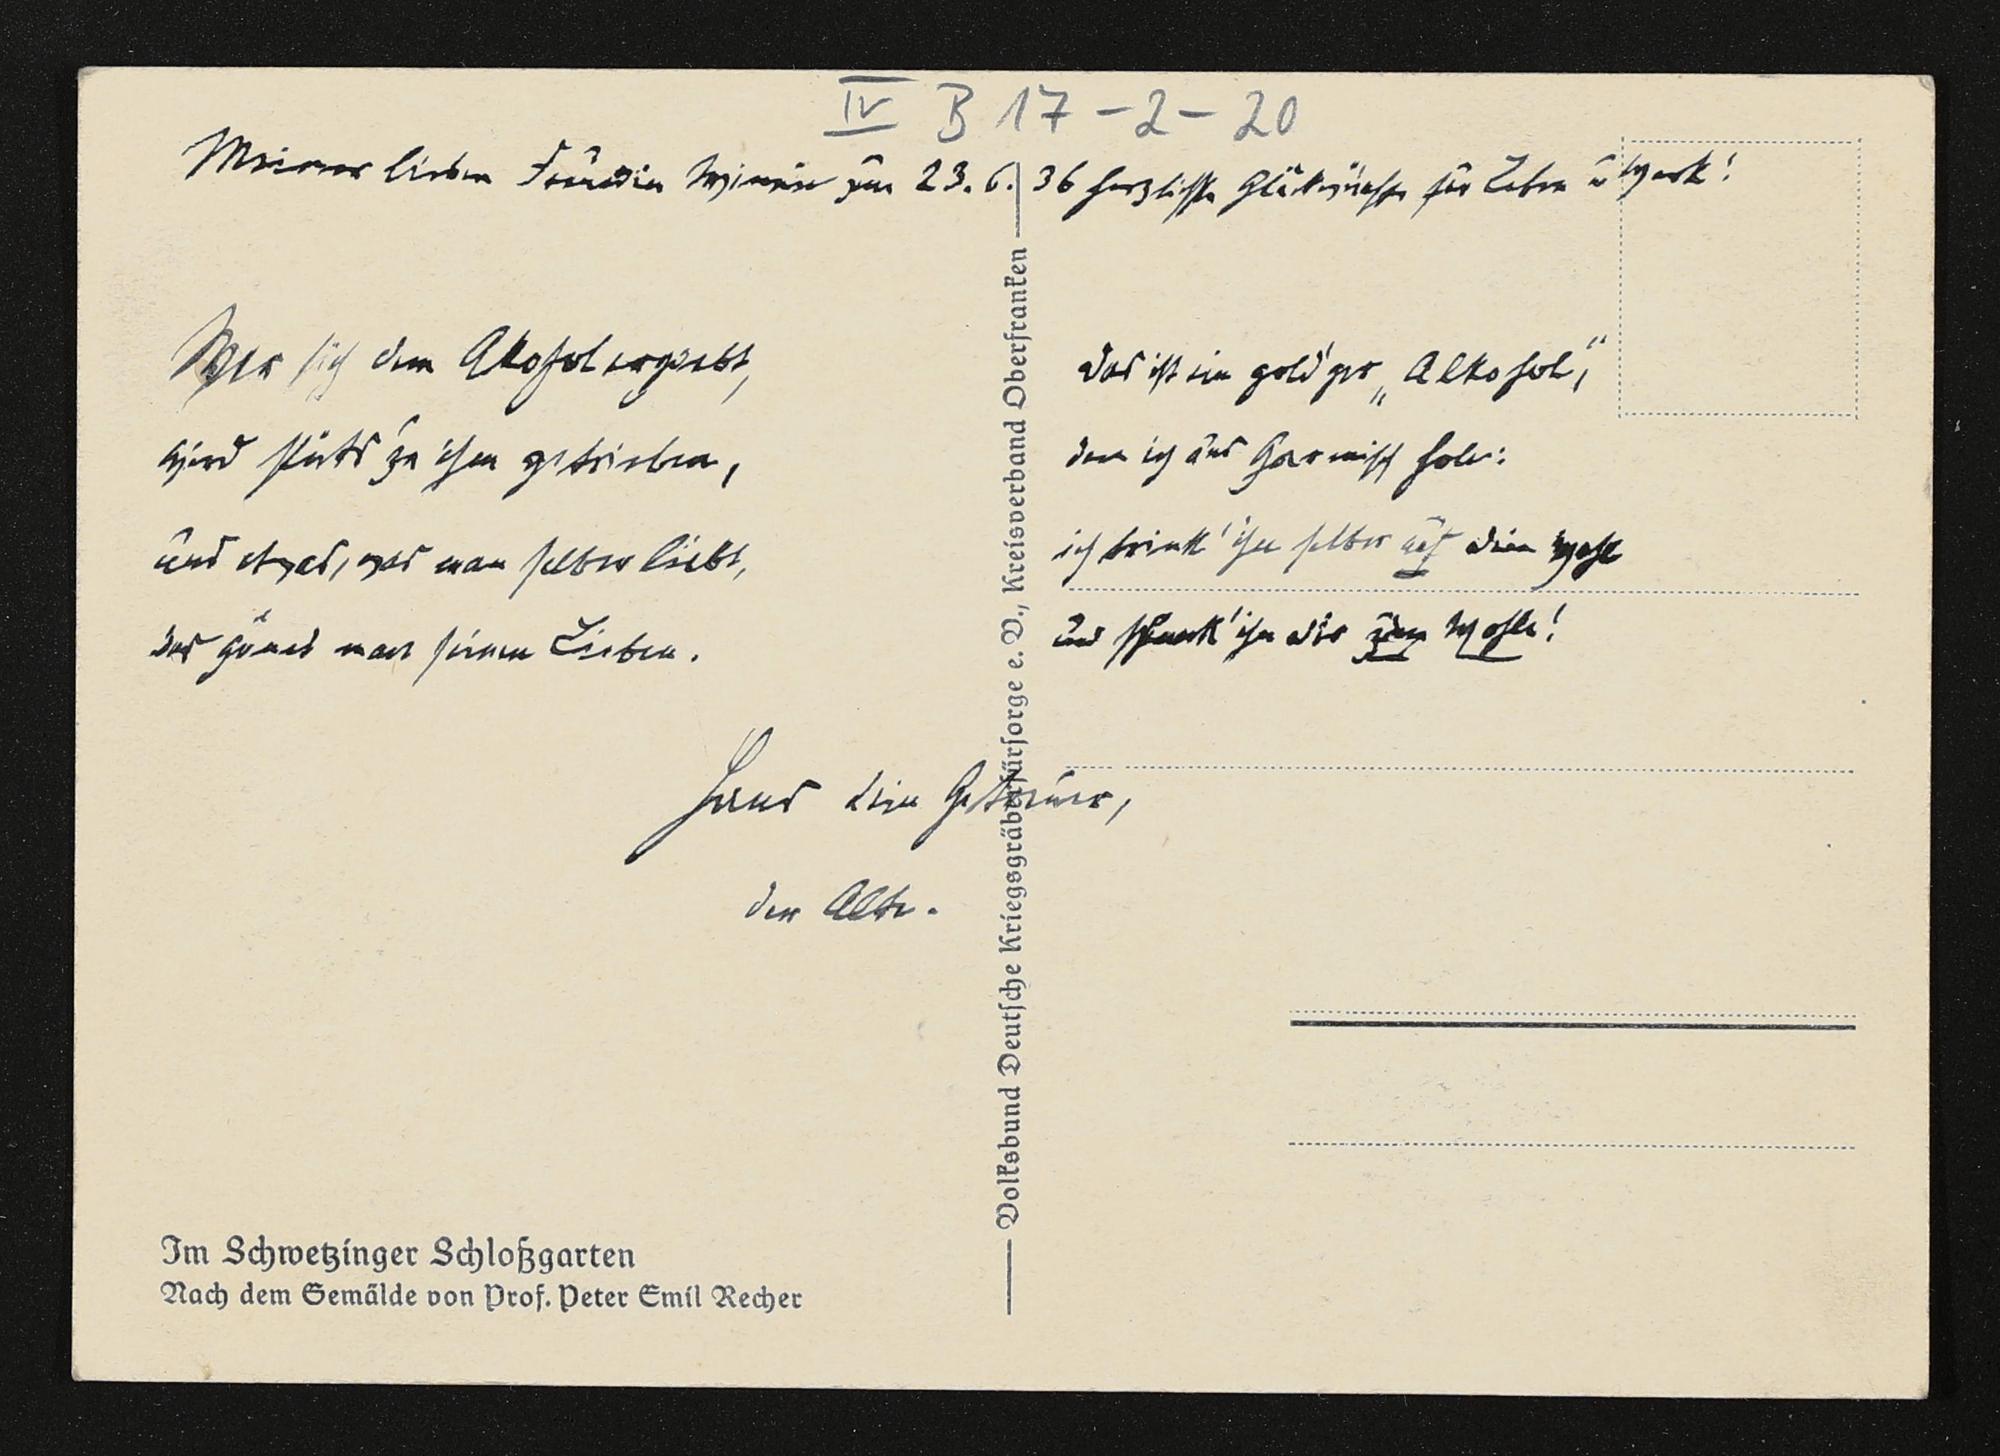 IV B 17-2-20
Meiner lieben Freundin zum 23.6.36 herzlichste Glückwünsche für Leben u Werk!
Wer sich dem Alkohol ergiebt,
wird stets zu ihm getrieben,
und etwas, was man selber liebt,
das gönnt man seinen Lieben.
Das ist ein gold'ger „Alkohol“,
den ich aus Garmisch hole:
ich trink' ihn selber auf dein Wohl
und schenk' ihn dir zum Wohle!
Hans dein Getreuer,
der Alte.
Volksbund Deutsche Kriegsgräberfürsorge e. V., Kreisverband Oberfranken
Im Schwetzinger Schloßgarten
Nach dem Gemälde von Prof. Peter Emil Recher